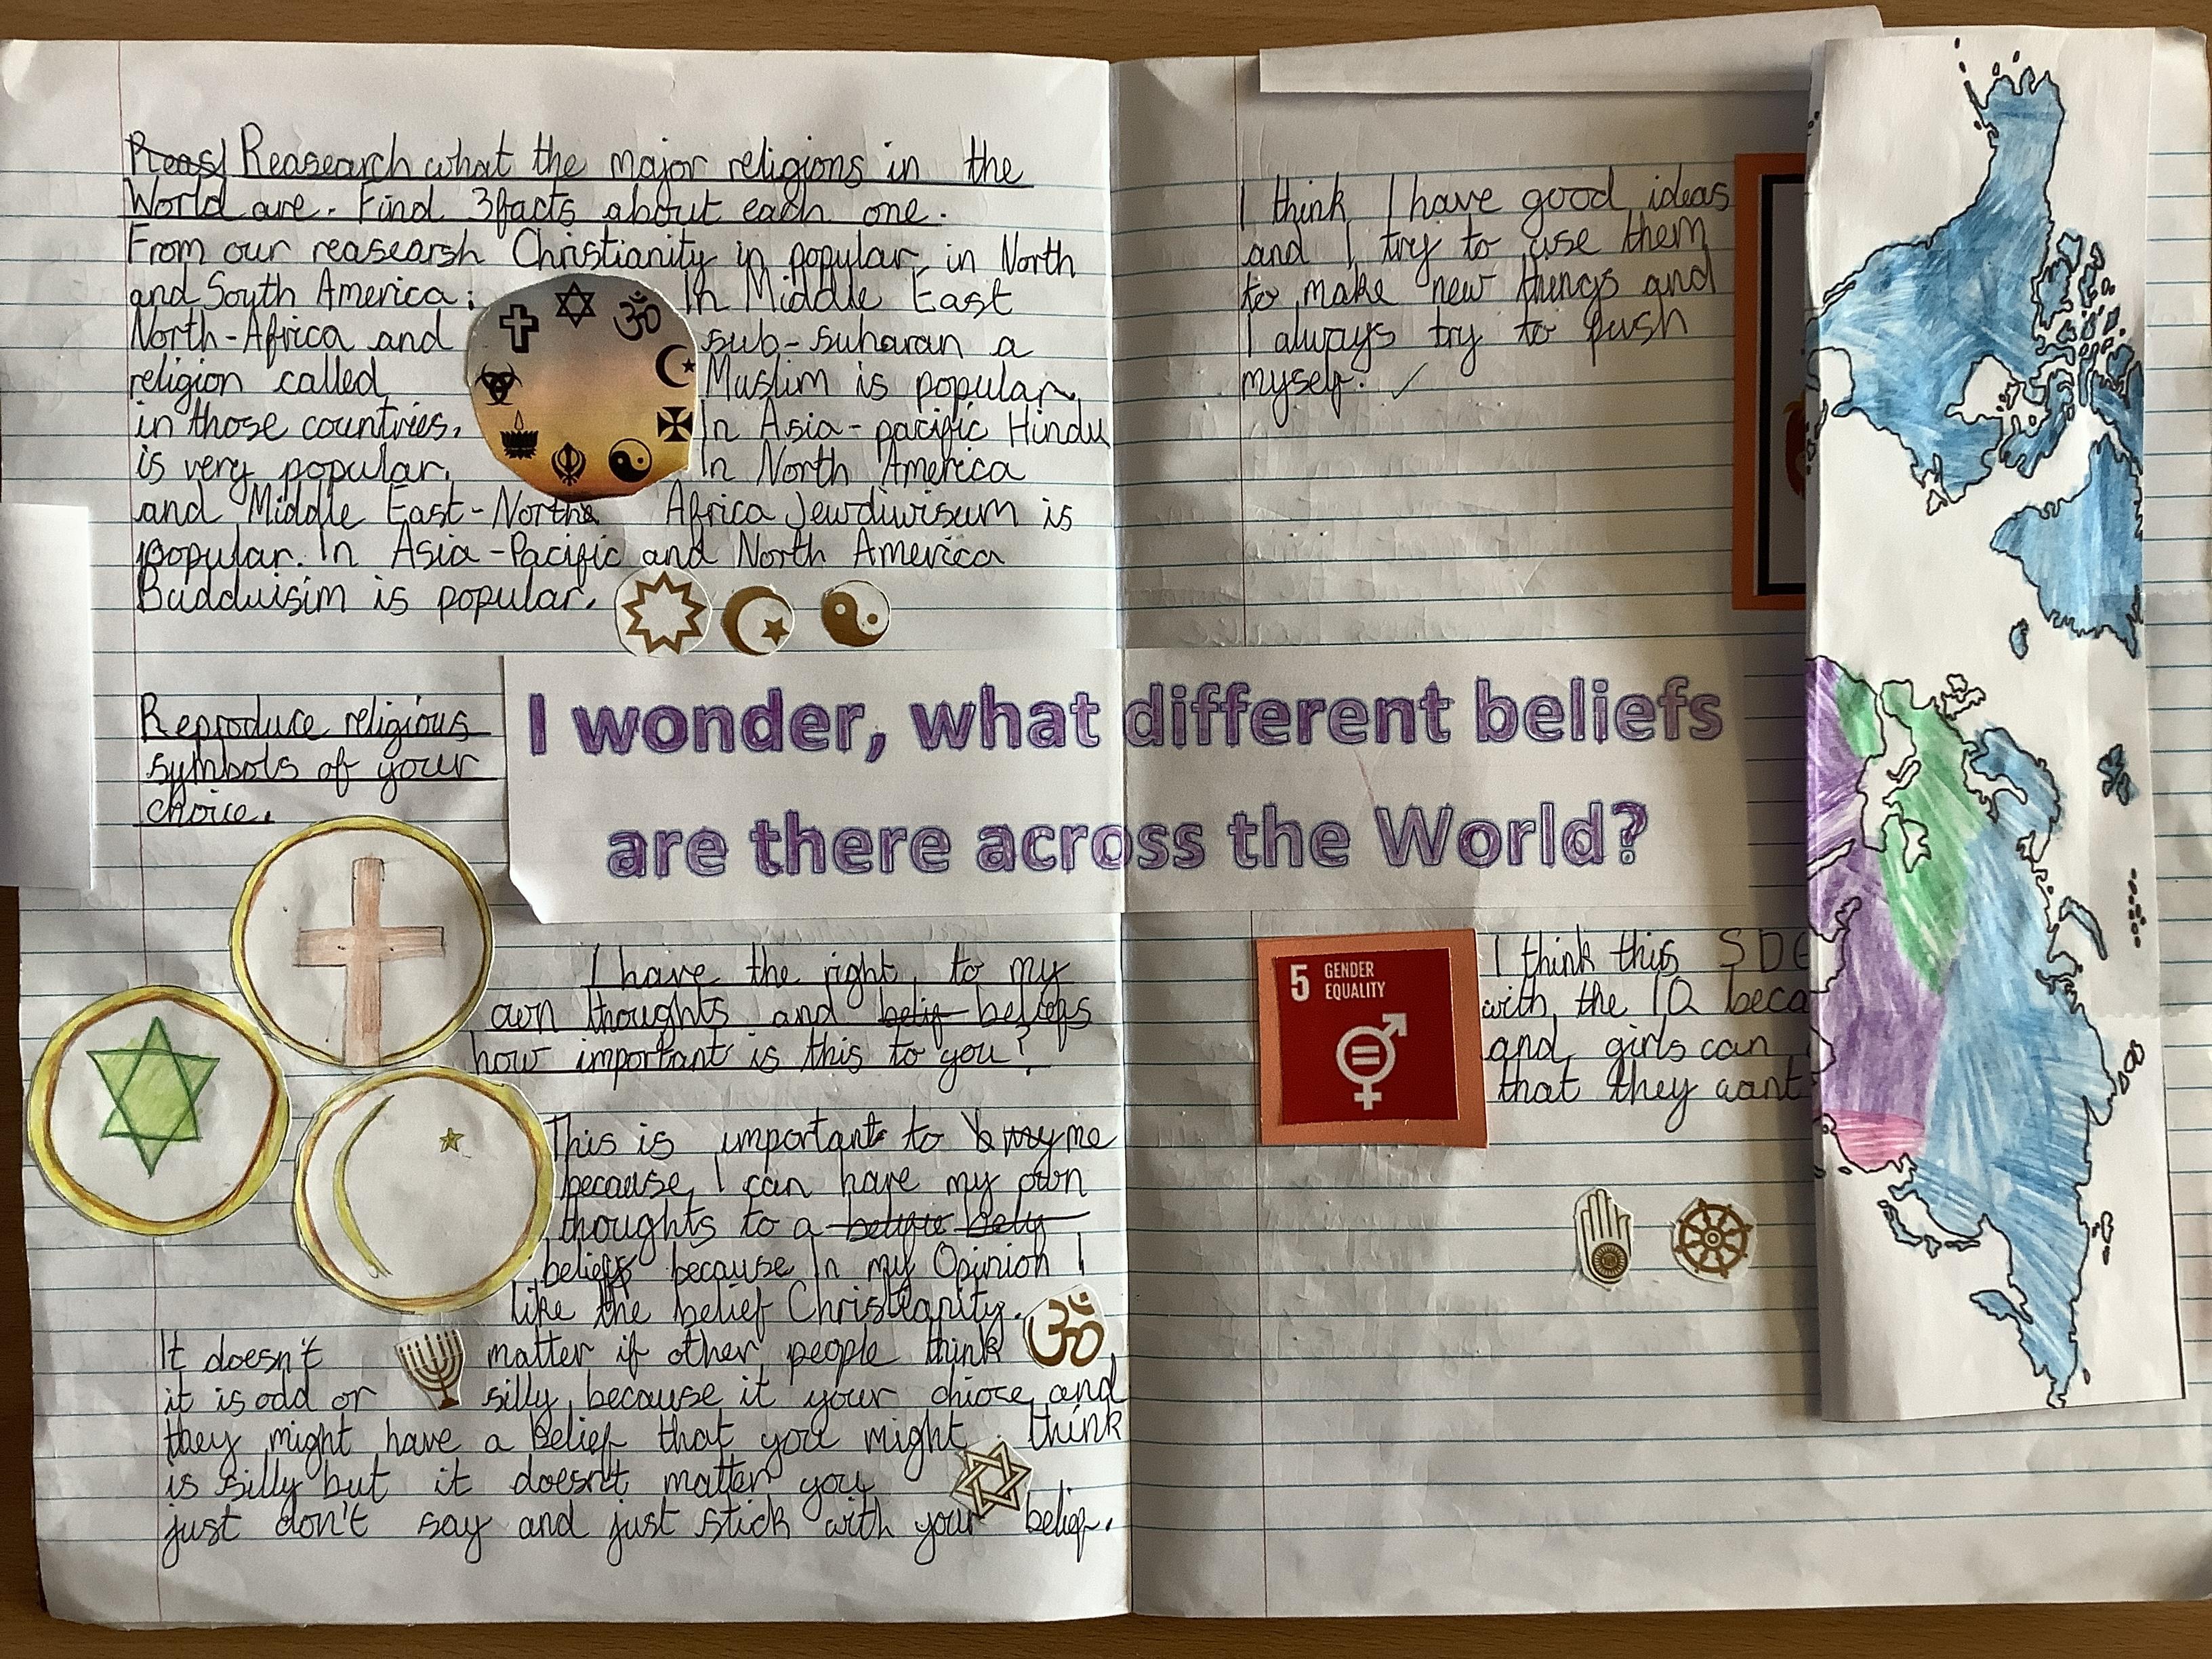 Reas Reasearch what the major religions in the
World are. Find 3facts about each one.
From our reasearsh Christianity in popular in North
and South America; In Middle East
North-Africa and sub-suharan a
religion called Muslim is popular
in those countries. In Asia-pacific Hindu
is very popular. In North America
and Middle East-North Africa Jewduwisum is
popular. In Asia-Pacific and North America
Budduisim is popular.
Reproduce religious
symbols of your
choice.
I wonder, what different beliefs
are there across the World?
I have the right to my
own thoughts and belif beliefs
how important is this to you?
This is important to my me
because I can have my own
thoughts to a
beliefs because In my Opinion I
like the belief Christianity.
It doesn't matter if other people think
it is odd or silly because it your chiose and
they might have a belief that you might think
is silly but it doesn't matter you
just don't say and just stick with your belief.
I think I have good ideas
and I try to use them
to make new things and
I always try to push
myself.
5 GENDER
EQUALITY
I think this SDG
with the IQ beca
and girls can
that they want